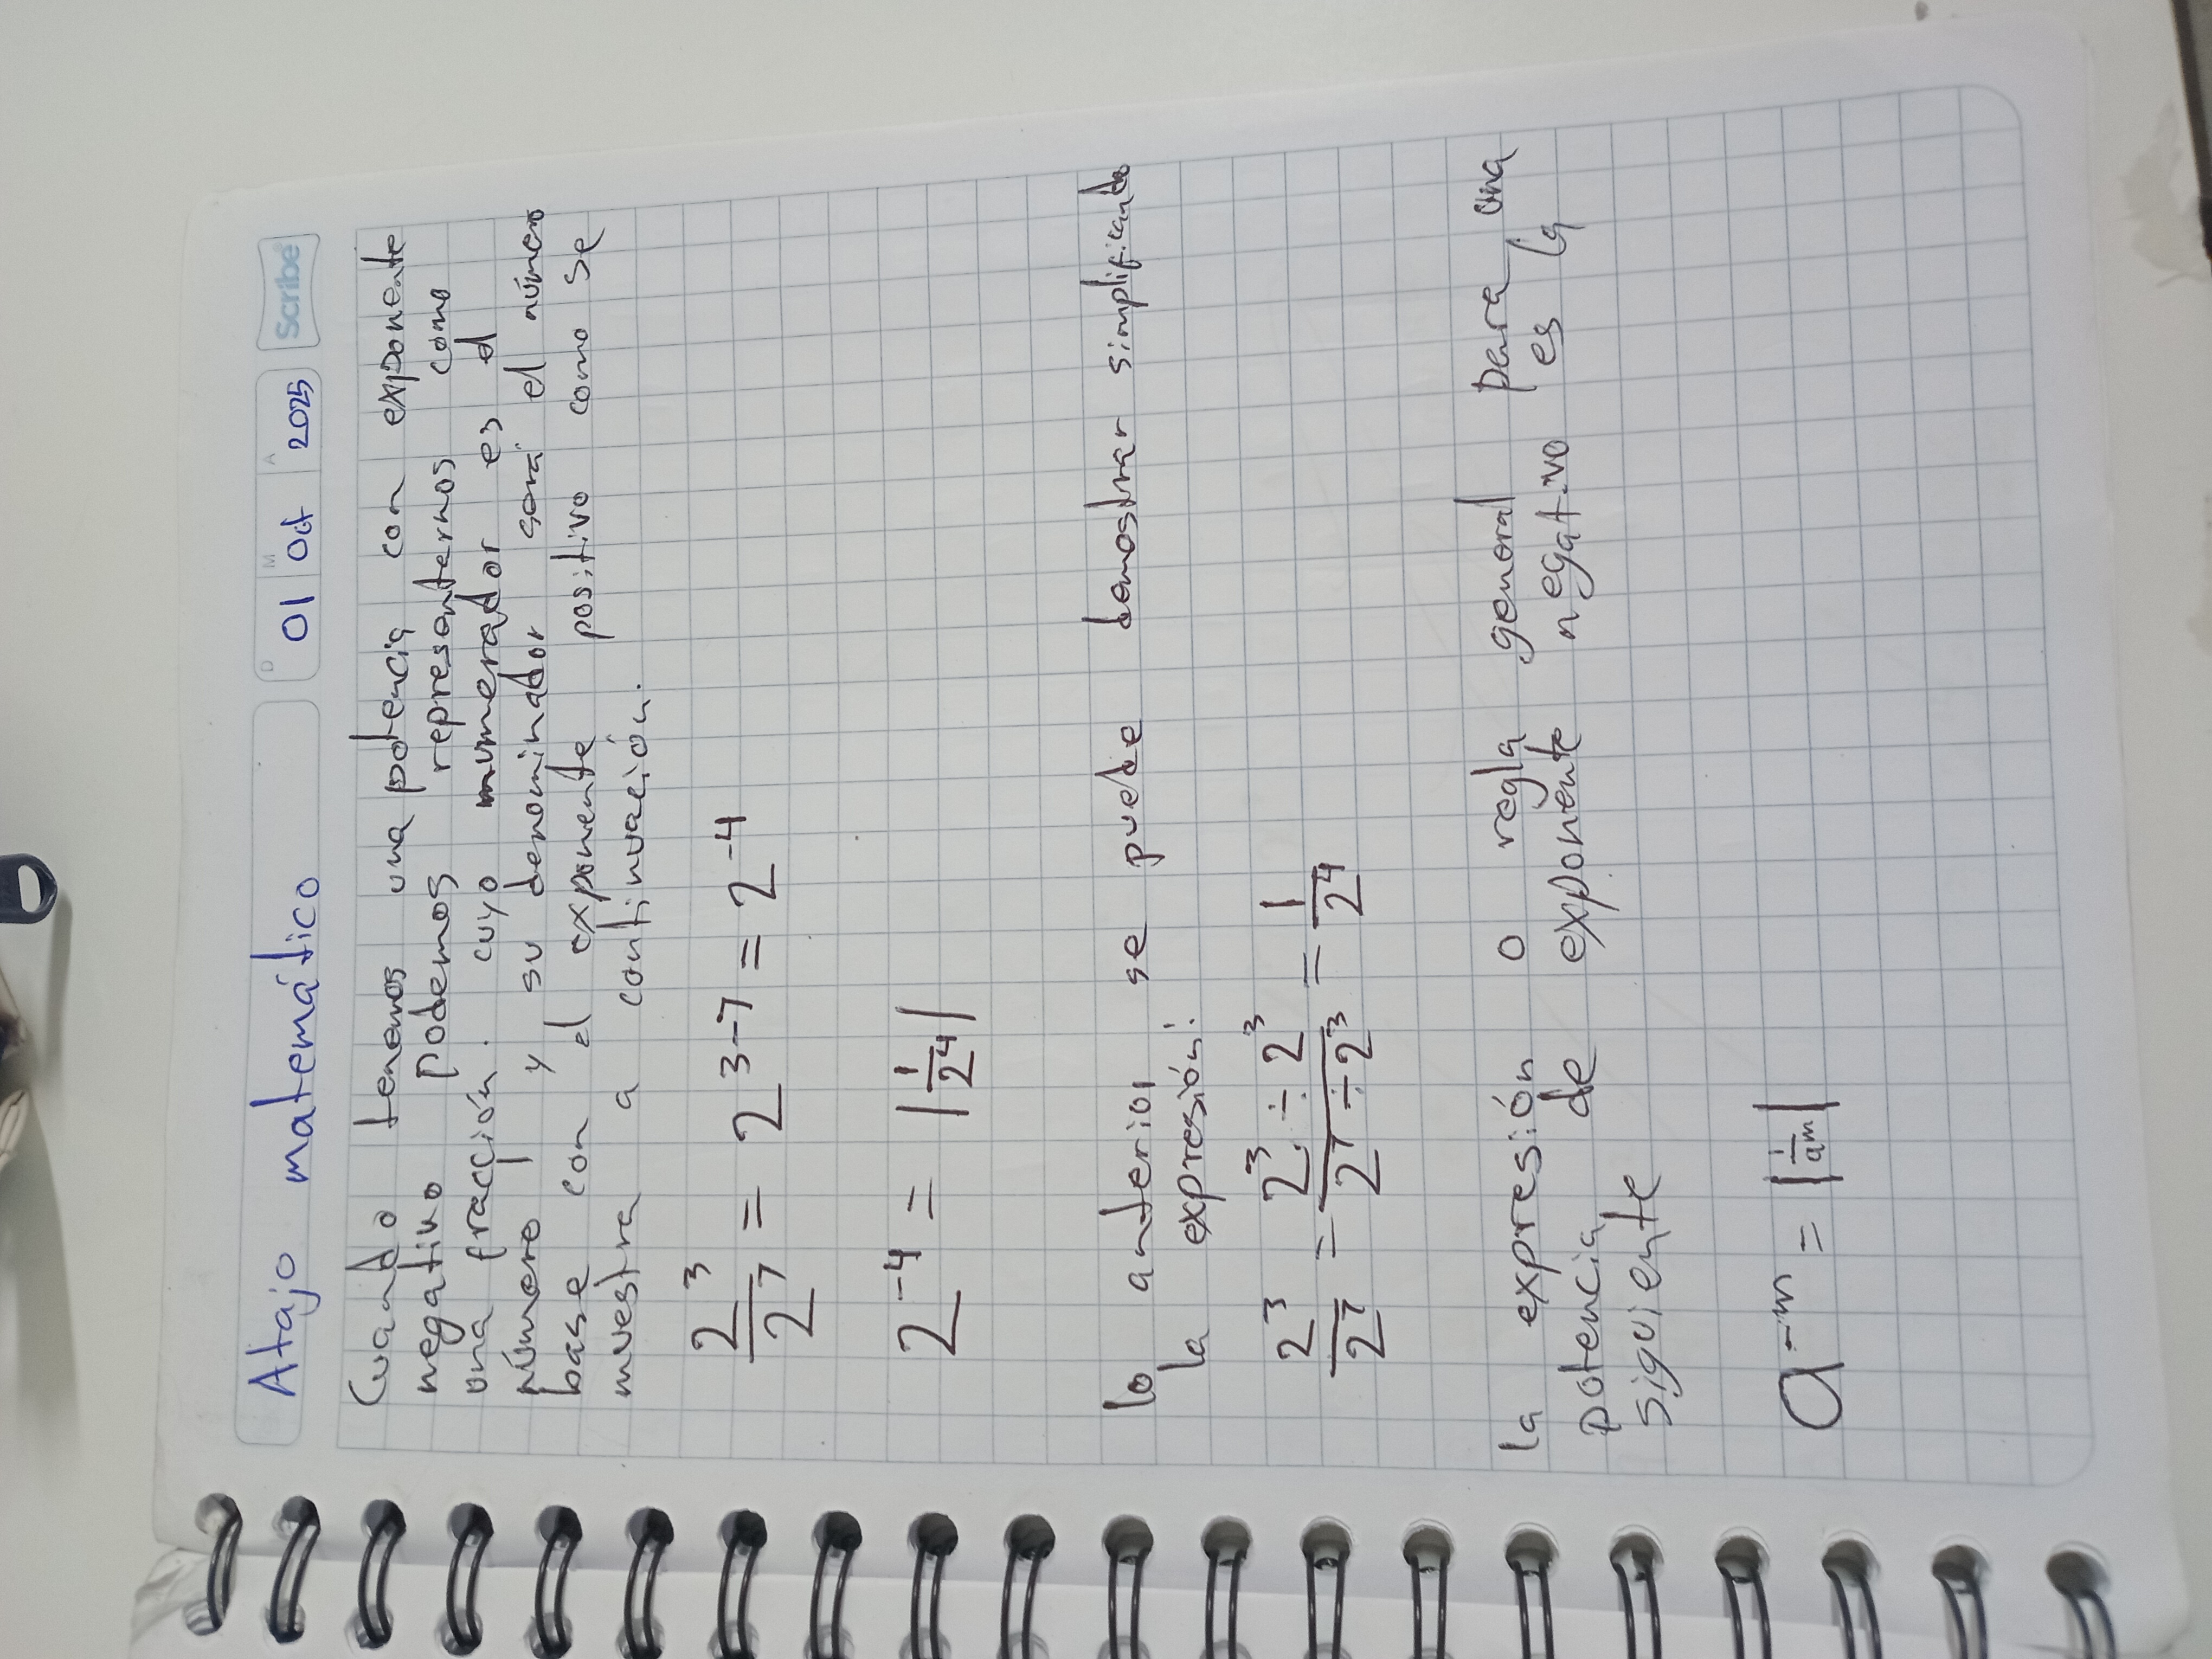 Atajo matemático
D M A
01 Oct 2025
Scribe
Cuando tenemos una potencia con exponente
negativo podemos represonternos como
una fracción. cuyo numerador es el
número 1 y su denominador sera el número
base con el exponente positivo como se
muestra a continuación.
2³/2⁷ = 2³⁻⁷ = 2⁻⁴
2⁻⁴ = |1/2⁴|
lo anterior se puede demostrar simplificando
la expresión:
2³/2⁷ = 2³÷2³/2⁷÷2³ = 1/2⁴
la expresión o regla general para una
potencia de exponente negativo es la
siguiente
a⁻ᵐ = |1/aᵐ|